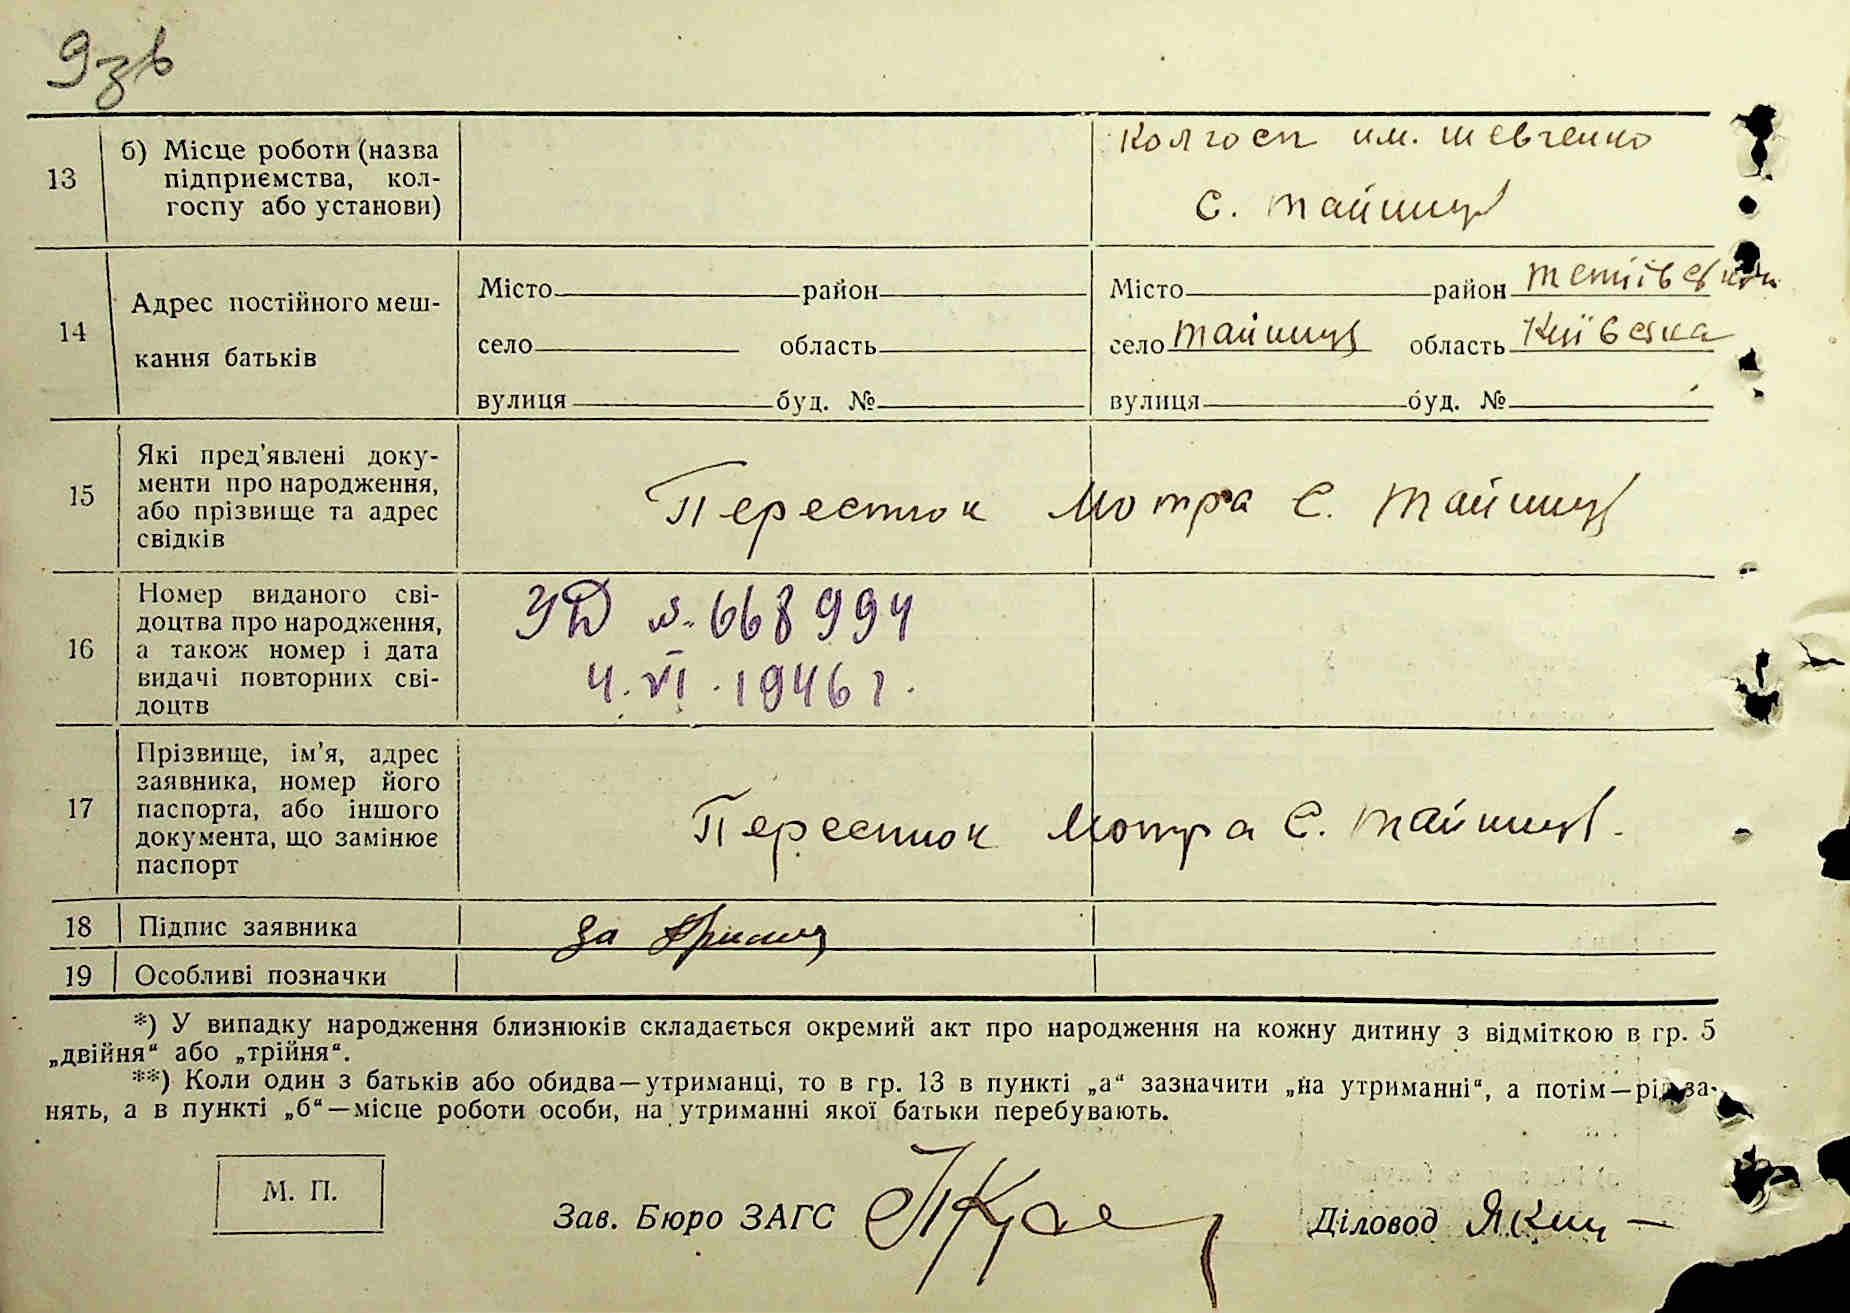 9зв
13 б) Місце роботи (назва
підприємства, кол-
госпу або установи)
Колгосп им. Шевченко
с. Тайниця
14 Адрес постійного меш-
кання батьків
Місто район
село область
вулиця буд. №
Місто район Тетіївський
село Тайниця область Київська
вулиця буд. №
15 Які пред’явлені доку-
менти про народження,
або прізвище та адрес
свідків
Перестюк Мотра с. Тайниця
16 Номер виданого сві-
доцтва про народження,
а також номер і дата
видачі повторних сві-
доцтв
УД №. 668994
4. VI. 1946 г.
17 Прізвище, ім’я, адрес
заявника, номер його
паспорта, або іншого
документа, що замінює
паспорт
Перестюк Мотра с. Тайниця.
18 Підпис заявника
за
19 Особливі позначки
*) У випадку народження близнюків складається окремий акт про народження на кожну дитину з відміткою в гр. 5
„двійня“ або „трійня“.
**) Коли один з батьків або обидва—утриманці, то в гр. 13 в пункті „а“ зазначити „на утриманні“, а потім—рід за-
нять, а в пункті „б“—місце роботи особи, на утриманні якої батьки перебувають.
М. П.
Зав. Бюро ЗАГС
Діловод